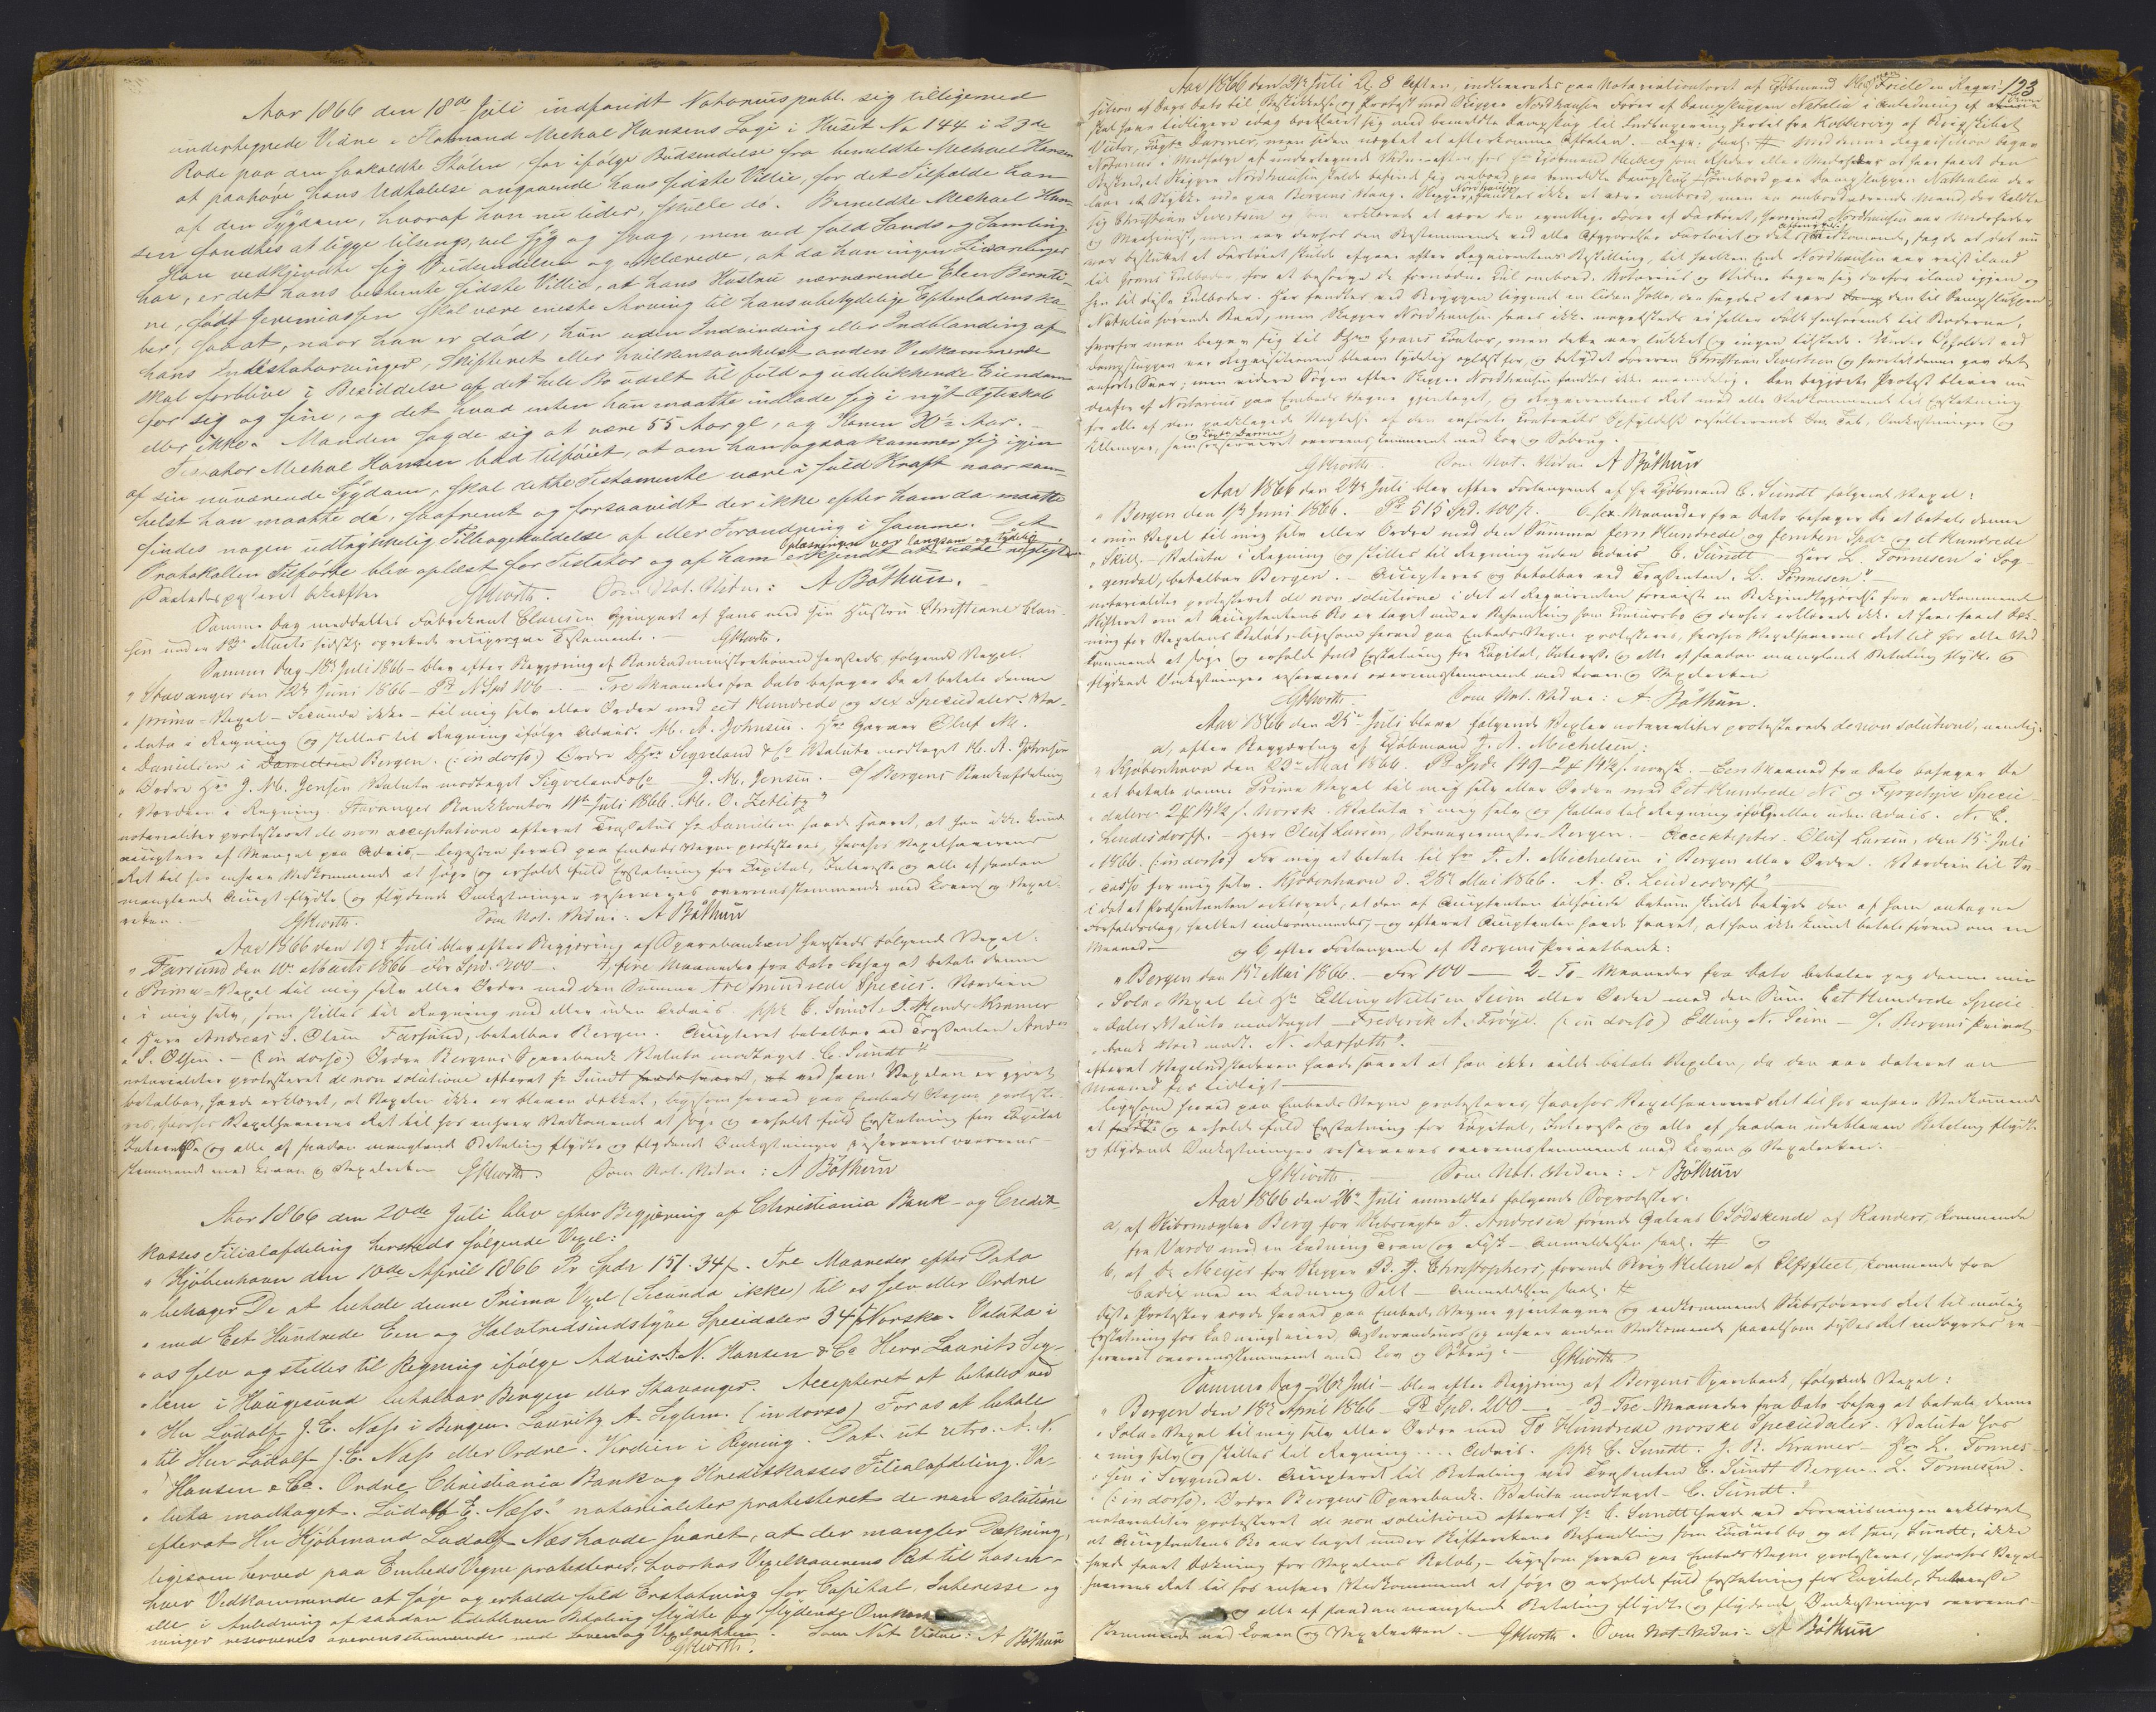 Aar 1866 den 18de Juli indfandt Notarius publ. sig tilligemed
undertegnede Vidne i Flotmand Michal Hansens Logi i Huset No 144 i 23de
Rode paa den saakaldte Skålen, for ifølge Budsendelse fra bemeldte Michael Hansen
at paahøre hans Udtalelse angaaende hans sidste Villie, for det Tilfælde han
af den Sygdom, hvoraf han nu lider, skulle dø. Bemeldte Michael Han-
sen fandtes at ligge tilsengs, vel syg og svag, men ved fuld Sands og Samling.
Han vedkjendte sig Budsendelsen og erklærede, at da han ingen Livsarvinger
har, er det hans bestemte sidste Villie, at hans Hustru nærværende Elen Bernti-
ne, født Jeremiassen skal være eneste Arving til hans ubetydelige Efterladenska-
ber, saa at, naar han er død, hun uden Indvending eller Indblanding af
hans Intestatarvinger, Skifteret eller hvilkensomhelst anden Vedkommende
skal forblive i Besiddelse af det hele Bo udelt til fuld og udelukkende Eiendom
for sig og sine, og det hvad enten hun maatte indlade sig i nyt Ægteskab
eller ikke. Manden sagde sig at være 55 Aar gl, og Konen 30½ Aar.
Testator Michal Hansen bad tilføiet, at om han ogsaa kommer sig igjen
af sin nuværende Sygdom, skal dette Testamente være i fuld Kraft naar som
helst han maatte dø, saafremt og forsaavidt der ikke efter ham da maatte
findes nogen udtrykkelig Tilbagekaldelse af eller Forandring i samme. Det
Oplæsningen var langsom og tydelig
Protokollen Tilførte blev oplæst for Testator og af ham erkjendt at være rigtigt
Saaledes passeret bekræfter GKiorth. Som Not. Vidne: A Bøthun.
Samme Dag meddeltes Fabrikant Clausen Gjenpart af hans med sin Hustru Christiane Clau-
sen under Marts sidstl. oprettede reciproque Testament. GKiorth.
Samme Dag 18de Juli 1866 blev efter Begjæring af Bankadministrationen hersteds følgende Vexel:
"Stavanger den 12te Juni 1866 – Pr N. Spd 106 – . Tre Maaneder fra Dato behager De at betale denne
" prima-Vexel – Secunda ikke – til mig selv eller Ordre med eet Hundrede og sex Speciedaler. Va-
" luta i Regning og stilles til Regning ifølge Advis. M. A. Johnsen. Hr Garver Oluf M.
" Danielsen i Bergen. (:in dorso:) Ordre Hrr Sigveland & Co Valuta modtaget M. A. Johnsen
" Ordre Hr J. M. Jensen Valuta modtaget Sigveland & Co. J. M. Jensen. – O/ Bergens Bankafdeling
" Værdien i Regning. Stavanger Bankkontor 11te Juli 1866. M. O. Zetlitz"
notarialiter protesteret de non acceptatione efterat Trassatus Hr Danielsen havde svaret, at han ikke kunde
acceptere af Mangel paa Advis, – ligesom herved paa Embeds Vegne protesteres, hvorhos Vexelhaverens
Ret til hos enhver Vedkommende at søge og erholde fuld Erstatning for Capital, Interesse og alle af saadan
manglende Accept flydte og flydende Omkostninger reserveres overensstemmende med Loven og Vexel-
retten. – GKiorth. Som Not. Vidne: A Bøthun
Aar 1866 den 19de Juli blev efter Begjæring af Sparebanken hersteds følgende Vexel:
"Farsund den 10de Marts 1866 – For Spd. 300 – . 4, fire Maaneder fra Dato behag at betale denne
" Prima-Vexel til mig selv eller Ordre med den Summa tre hundrede Species. Værdien
" i mig selv, som stilles til Regning med eller uden Advis. ppr C. Sundt, Kramer
" Herr Andreas S. Olsen Farsund, betalbar Bergen. Accepteret betalbar ved Trassenten Andr.
" S. Olsen. – (:in dorso:) Ordre Bergens Sparebank Valuta modtaget. C. Sundt"
notarialiter protesteret de non solutione efterat Hr Sundt ved hvem Vexelen er gjort
betalbar, havde erklæret, at Vexelen ikke er bleven dækket; ligesom herved paa Embeds Vegne proteste-
res, hvorhos Vexelhaverens Ret til hos enhver Vedkommende at søge og erholde fuld Erstatning for Capital
Interesse og alle af saadan manglende Betaling flydte og flydende Omkostninger reserveres overens-
stemmende med Loven og Vexelretten GKiorth. Som Not. Vidne: A Bøthun
Aar 1866 den 20de Juli blev efter Begjæring af Christiania Bank- og Credit-
kasses Filialafdeling hersteds følgende Vexel:
" Kjøbenhavn den 10de April 1866 Pr Spdr 151.34ß. Tre Maaneder efter Dato
" behager De at betale denne Prima Vexel (Secunda ikke) til os selv eller Ordre
" med Eet Hundrede Een og Halvtredsindstyve Speciedaler 34 ß Norske. Valuta i
" os selv og stilles til Regning ifølge Advis. A. N. Hansen & Co Herr Laurits Seg-
" lem i Haugesund betalbar Bergen eller Stavanger. Accepteret at betales ved
" Hr Ludolf J. C. Næss i Bergen. Lauritz A. Seglem. (in dorso) For os at betale
" til Herr Ludolf J. C. Næss eller Ordre. Værdien i Regning. Dat. ut retro. A. N.
" Hansen & Co. Ordre Christiania Bank og Kreditkasses Filialafdeling. Va-
" luta modtaget. Ludolf E. Næss." notarialiter protesteret de non solutione
efterat Hr Kjøbmand Ludolf Næs havde svaret, at der mangler Dækning,
ligesom herved paa Embeds Vegne protesteres, hvorhos Vexelhaverens Ret til hos en-
hver Vedkommende at søge og erholde fuld Erstatning for Capital, Interesse og
alle i Anledning af saadan udebleven Betaling flydte og flydende Omkost
ninger reserveres overensstemmende med Loven og Vexelretten. Som Not Vidne: A Bøthun
GKiorth.
123
Aar 1866 den 21de Juli Kl 8 Aften, indleveredes paa Notarialcontoret af Kjøbmand Friele en Requi-
sition af Dags Dato til Beskikkelse og Protest mod Skipper Nordhausen Fører af Dampskuppen Natalia i Anledning af
skal have tidligere idag forpligtet sig med bemeldte Dampskib til Indbugsering hertil fra Kobbervig af Krigsskibet
Victor, Capt. Darmer, men siden nægtet at efterkomme Aftalen. –
Notarius i Medfølge af undertegnede Vidne efter hos Hr Kjøbmand
Nathalia der
laae et Stykke ude paa Bergens Vaag. Skipper Nordhausen fandtes ikke at være ombord, men en ombordværende Mand, der kaldte
sig Christian Sivertsen og som erklærede at være den egentlige Fører af Fartøiet, hvorimod Nordhausen var Medrheder
og Maskinist, men var derhos den Bestemmende ved alle Afgjørelser Fartøiet og dets vedkommende, sagde at det nu
var besluttet at Fartøiet skulde afgaae efter Requirentens Bestilling, til hvilken Ende Nordhausen var reist iland
til Grans Kulboder for at besørge de fornødne Kul ombord. Notarius og Vidne begav sig derfor iland igjen og
hen til disse Kulboder. Her fandtes ved Bryggen liggende en liden Jolle, der sagdes at være den til Dampskuppen
Natalia hørende Baad, men Skipper Nordhausen saaes ikke nogetsteds ei heller Folk henhørende til Boderne,
hvorfor man begav sig til Hrr Grans Contor, men dette var lukket og ingen tilstede. Under Opholdet ved
Dampskuppen var Requisitionen bleven tydelig oplæst for og betydet Føreren Christian Sivertsen og havde denne gav det
anførte Svar; men videre Søgen efter Skipper Nordhausen fandtes ikke anvendelig. Den begjærte Protest blev nu
derfor af Notarius paa Embeds Vegne gjentaget, og Requirentens Ret mod alle Vedkommende til Erstatning
for alle af den paaklagede Vægrelse af den anførte Contracts Opfyldelse resulterende Tab, Omkostninger og
og Capt. Darmer
Ulemper, som reserveret overensstemmende med Lov og Søbrug.
GKiorth. Som Not. Vidne A Bøthun
Aar 1866 den 24de Juli blev efter Forlangende af Hr Kjøbmand C. Sundt følgende Vexel:
" Bergen den 1ste Juni 1866. – Pr 515 Spd. 100ß. – 6 sex Maaneder fra Dato behager De at betale denne
" min Vexel til mig selv eller Ordre med den Summa fem Hundrede og femten Spdr og et Hundrede
" Skill. – Valuta i Regning og stilles til Regning uden Advis C. Sundt – Herr L. Tønnesen i Sog-
" gendal, betalbar Bergen. – Accepteres og betalbar ved Trassenten. L. Tønnesen". –
notarialiter protesteret de non solutione i det at Requirenten foreviste en Bekjendtgjørelse fra vedkommende
Skifteret om at Acceptantens Bo er taget under Behandling som Concursbo og derhos erklærede ikke at have faaet Dæk-
ning for Vexelens Beløb, – ligesom herved paa Embeds Vegne protesteres, hvorhos Vexelhaverens Ret til hos alle Ved-
kommende at søge og erholde fuld Erstatning for Capital, Interesse og alle af saadan manglende Betaling flydte og
flydende Omkostninger reserveres overensstemmende med Loven og Vexelretten
GKiorth. Som Not. Vidne: A. Bøthun.
Aar 1866 den 25de Juli bleve følgende Vexler notarialiter protesterede de non solutione, nemlig:
a, efter Begjæring af Kjøbmand J. A. Michelsen:
" Kjøbenhavn den 23de Mai 1866. Pr Spdr 149 – 2 14½ ß norsk. – Een Maaned fra Dato behager De
" at betale denne Prima Vexel til mig selv eller Ordre med Eet Hundrede Ni og Fyrgetyve Specie-
" daler 2 14½ ß. Norsk. Valuta i mig selv og stilles til Regning ifølge eller uden Advis. N. E.
" Lendesdorff. – Herr Oluf Larsen, Skomagermester Bergen. – Accepterer. Oluf Larsen, den 15de Juli
" 1866. (:in dorso:) For mig at betale til Hr J. A. Michelsen i Bergen eller Ordre. Værdien til In-
" casso for mig selv. Kjøbenhavn d. 28de Mai 1866. A. E. Lendesdorff"
i det at Præsentanten erklærede, at den af Acceptanten tilføiede Datum skulde betyde den af ham antagne
Forfaldsdag, hvilket indrømmedes, – og efterat Acceptanten havde svaret, at han ikke kunde betale førend om en
Maaned –
og b, efter Forlangende af Bergens Privatbank:
" Bergen den 15de Mai 1866. – For 100 –– 2 – To – Maaneder fra Dato betaler jeg denne min
" Sola-Vexel til Hr Elling Nielsen Seim eller Ordre med den Sum Eet Hundrede Specie-
" daler, Valuta modtaget – Frederik A. Frøye. (:in dorso:) Elling N. Seim – O/ Bergens Privat-
" bank Værd. modt. N. Aarsæth".
efterat Vexeludstederen havde svaret at han ikke vilde betale Vexelen, da den var dateret en
Maaned for tidligt –
ligesom herved paa Embeds Vegne protesteres, hvorhos Vexelhaverens Ret til hos enhver Vedkommende
at søge og erholde fuld Erstatning for Capital, Interesse og alle af saadan udebleven Betaling flydte
og flydende Omkostninger reserveres overensstemmende med Loven og Vexelretten.
GKiorth. – Som Not. Vidne: A Bøthun
Aar 1866 den 26de Juli anmeldtes følgende Søprotester:
a, af Skibsmægler Berg for Skibscapt. J. Andresen førende Galeas 6 Södskende af Randers, kommende
fra Vardø med en Ladning Tran og Fisk – Anmeldelsen saal. # og
b, af Dr Meyer for Skipper B. J. Christophers, førende Brig Helene af Elsfleth, kommende fra
Cadix med en Ladning Salt – Anmeldelsen saal. #
disse Protester bleve herved paa Embeds Vegne gjentagne og vedkommende Skibsføreres Ret til mulig
Erstatning hos Ladningseiere, Assurandeurs og enhver anden Vedkommende saavelsom disses Ret indbyrdes re-
serveret overensstemmende med Lov og Søbrug. – GKiorth
Samme Dag – 26de Juli – blev efter Begjæring af Bergens Sparebank, følgende Vexel:
" Bergen den 18de April 1866 – Pr Spd. 200 – . – 3 Tre – Maaneder fra Dato behag at betale denne
" Sola-Vexel til mig selv eller Ordre med To Hundrede norske Speciedaler. Valuta hos
" mig selv og stilles til Regning .... Advis. ppr C. Sundt. J. B. Kramer – Hr L. Tønnes-
" sen i Soggendal. Accepteret til Betaling ved Trassenten C. Sundt Bergen. L. Tønnesen.
" (:in dorso). Ordre Bergens Sparebank. Valuta modtaget – C. Sundt."
notarialiter protesteret de non solutione efterat Hr C. Sundt havde ved Foreviisningen erklæret
at Acceptantens Bo var taget under Skifterettens Behandling som Concursbo og at han, Sundt, ikke
havde faaet Dækning for Vexelens Beløb, – ligesom herved paa Embeds Vegne protesteres, hvorhos Vexel-
haverens Ret til hos enhver Vedkommende at søge og erholde fuld Erstatning for Capital, Interesse
og alle af saadan manglende Betaling flydte og flydende Omkostninger overens-
stemmende med Loven og Vexelretten. – GKiorth. Som Not. Vidne: A Bøthun